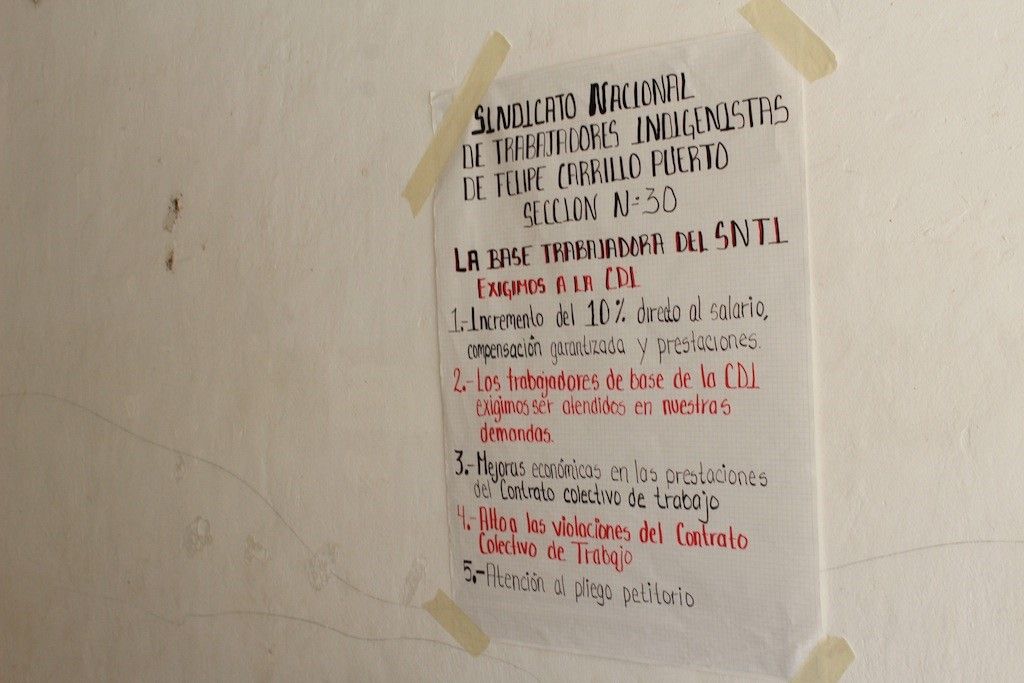 SINDICATO NACIONAL
DE TRABAJADORES INDIGENISTAS
DE FELIPE CARRILLO PUERTO
SECCION Nº 30
LA BASE TRABAJADORA DEL SNTI
EXIGIMOS A LA CDI
1.-Incremento del 10% directo al salario,
compensación garantizada y prestaciones.
2.-Los trabajadores de base de la CDI
exigimos ser atendidos en nuestras
demandas.
3.-Mejoras económicas en las prestaciones
del Contrato colectivo de trabajo
4.-Alto a las violaciones del Contrato
Colectivo de Trabajo
5.-Atención al pliego petitorio